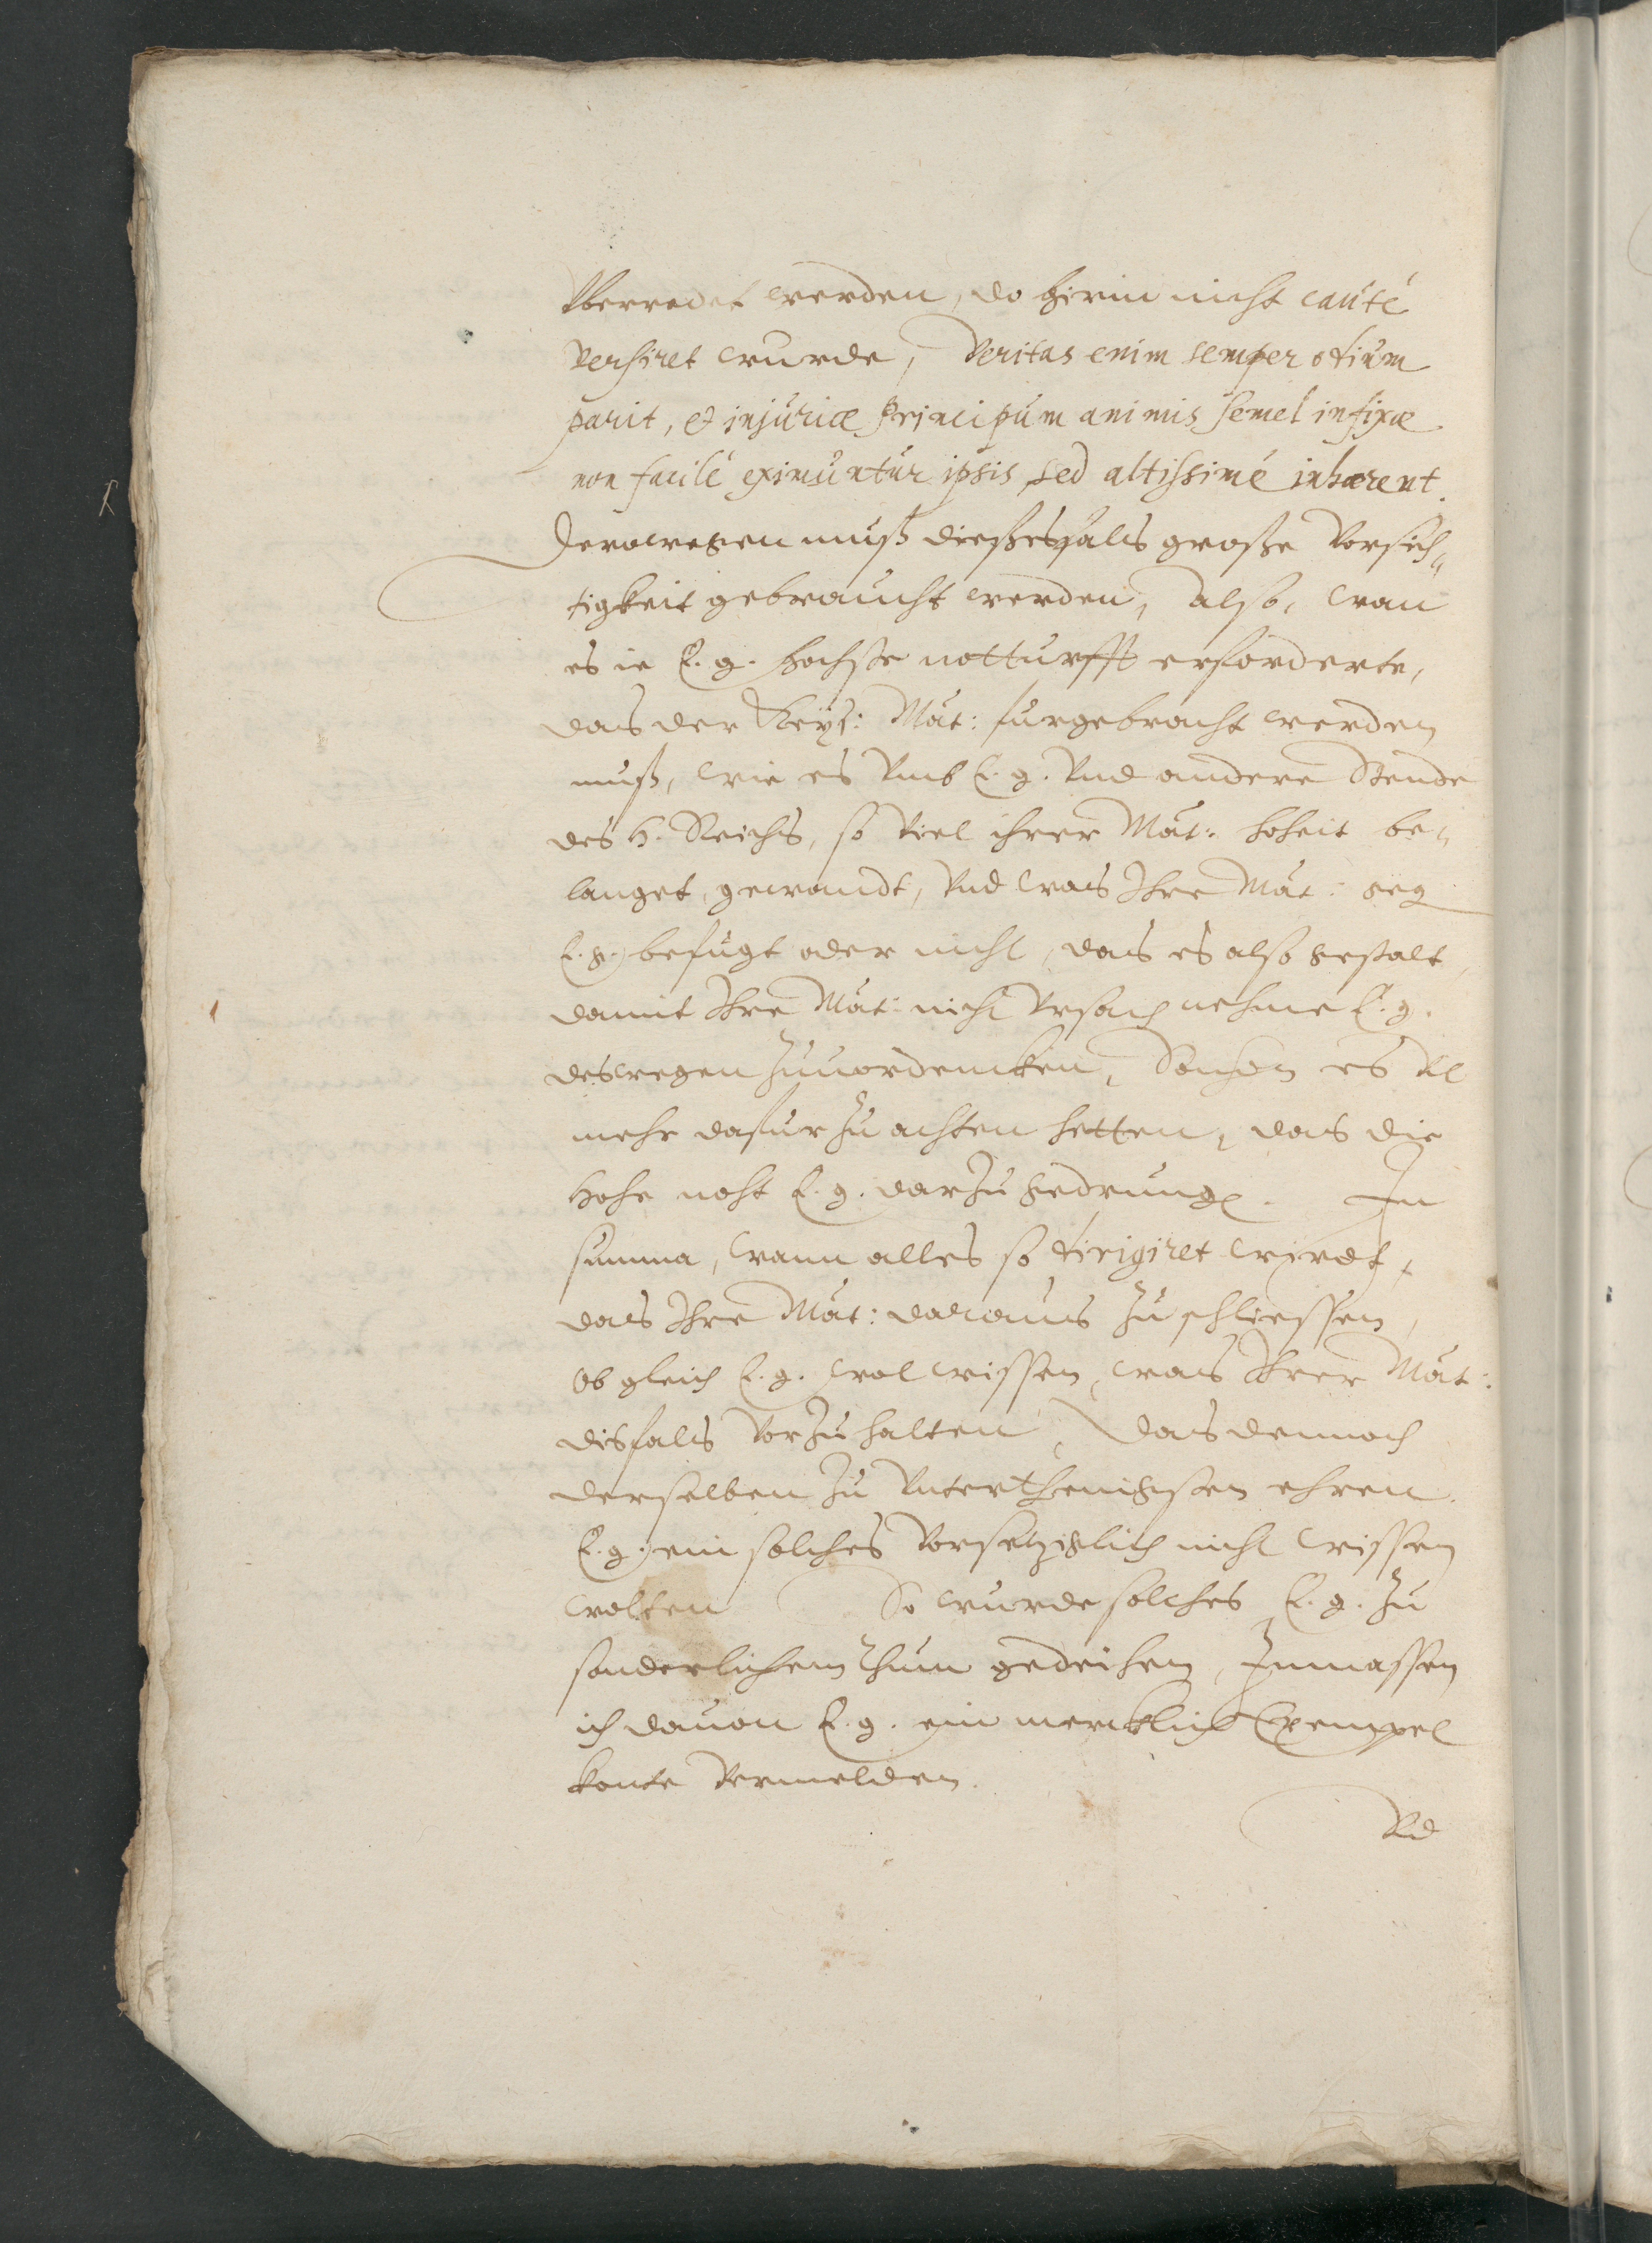 Vberredet werden, do hirin nicht cauté
versiret wurde, Veritas enim semper otium
parit, & injuriæ Principum animis semel infixæ
non facilé eximuntur ipsis, sed altissimé inhærent.
Derowegen muß dießesfals große Vorsich„
tigkeit gebraucht werden, also, wan
es ie E. g. hochste notturfft erforderte,
das der Keys: Mat: furgebracht werden
muß, wie es Vmb E. g. Vnd andere Stende
des H. Reichs, so Viel ihrer Mat: hoheit be„
langet, gewandt, Vnd was Ihre Mat: geg
E. g. befugt oder nicht, das es also gestalt,
damit Ihre Mat: nicht Vrsach nehme E. g.
deswegen zuuordencken, Sonsten es Vil
mehr dafur zu achten hetten, das die
Hohe noht E. g. darzu gedrung. In
summa, wann alles so dirigiret wirdt,
das Ihre Mat: daraus zu schliessen,
Ob gleich E. g. wol wissen, was Ihrer Mat:
disfals Vorzuhalten, das dennoch
derselben zu Vnterthenigsten ehren
E. g. ein solches Vorsetziglich nicht wissen
wolten So wurde solches E. g. zu
sonderlichem thum gedeihen, Inmassen
ich dauon E. g. ein mercklich Exempel
konte Vermelden.
Vnd